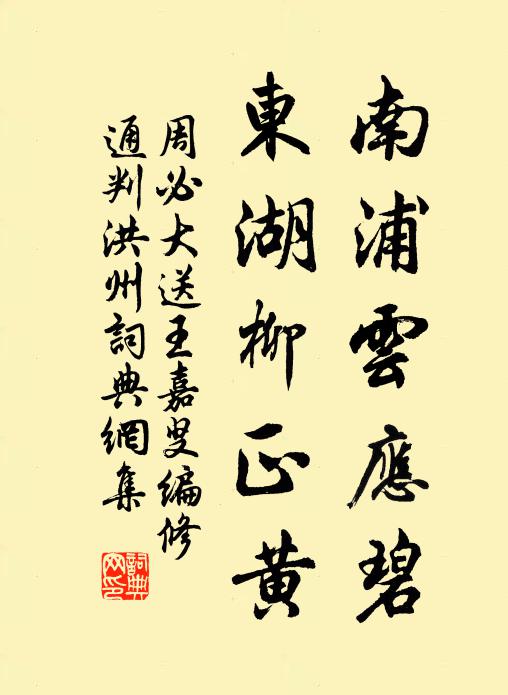 南浦雲應碧
東湖柳正黃
周必大送王嘉叟編修
通判洪州詞典網集
詞典網印